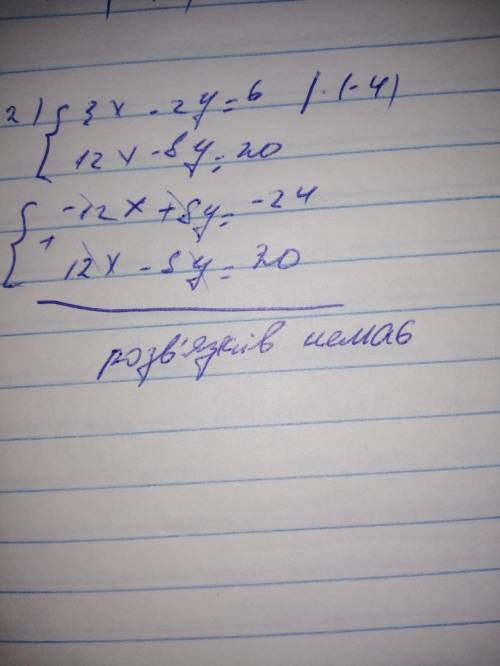 2) { 3x - 2y = 6 | · (-4)
12x - 8y = 20
{ -12x + 8y = -24
+ 12x - 8y = 20
розв'язків немає